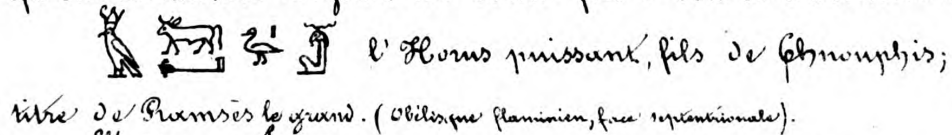 l'Horus puissant, fils de Chnouphis;
titre de Ramsès le grand. (Obélisque flaminien, face septentrionale).